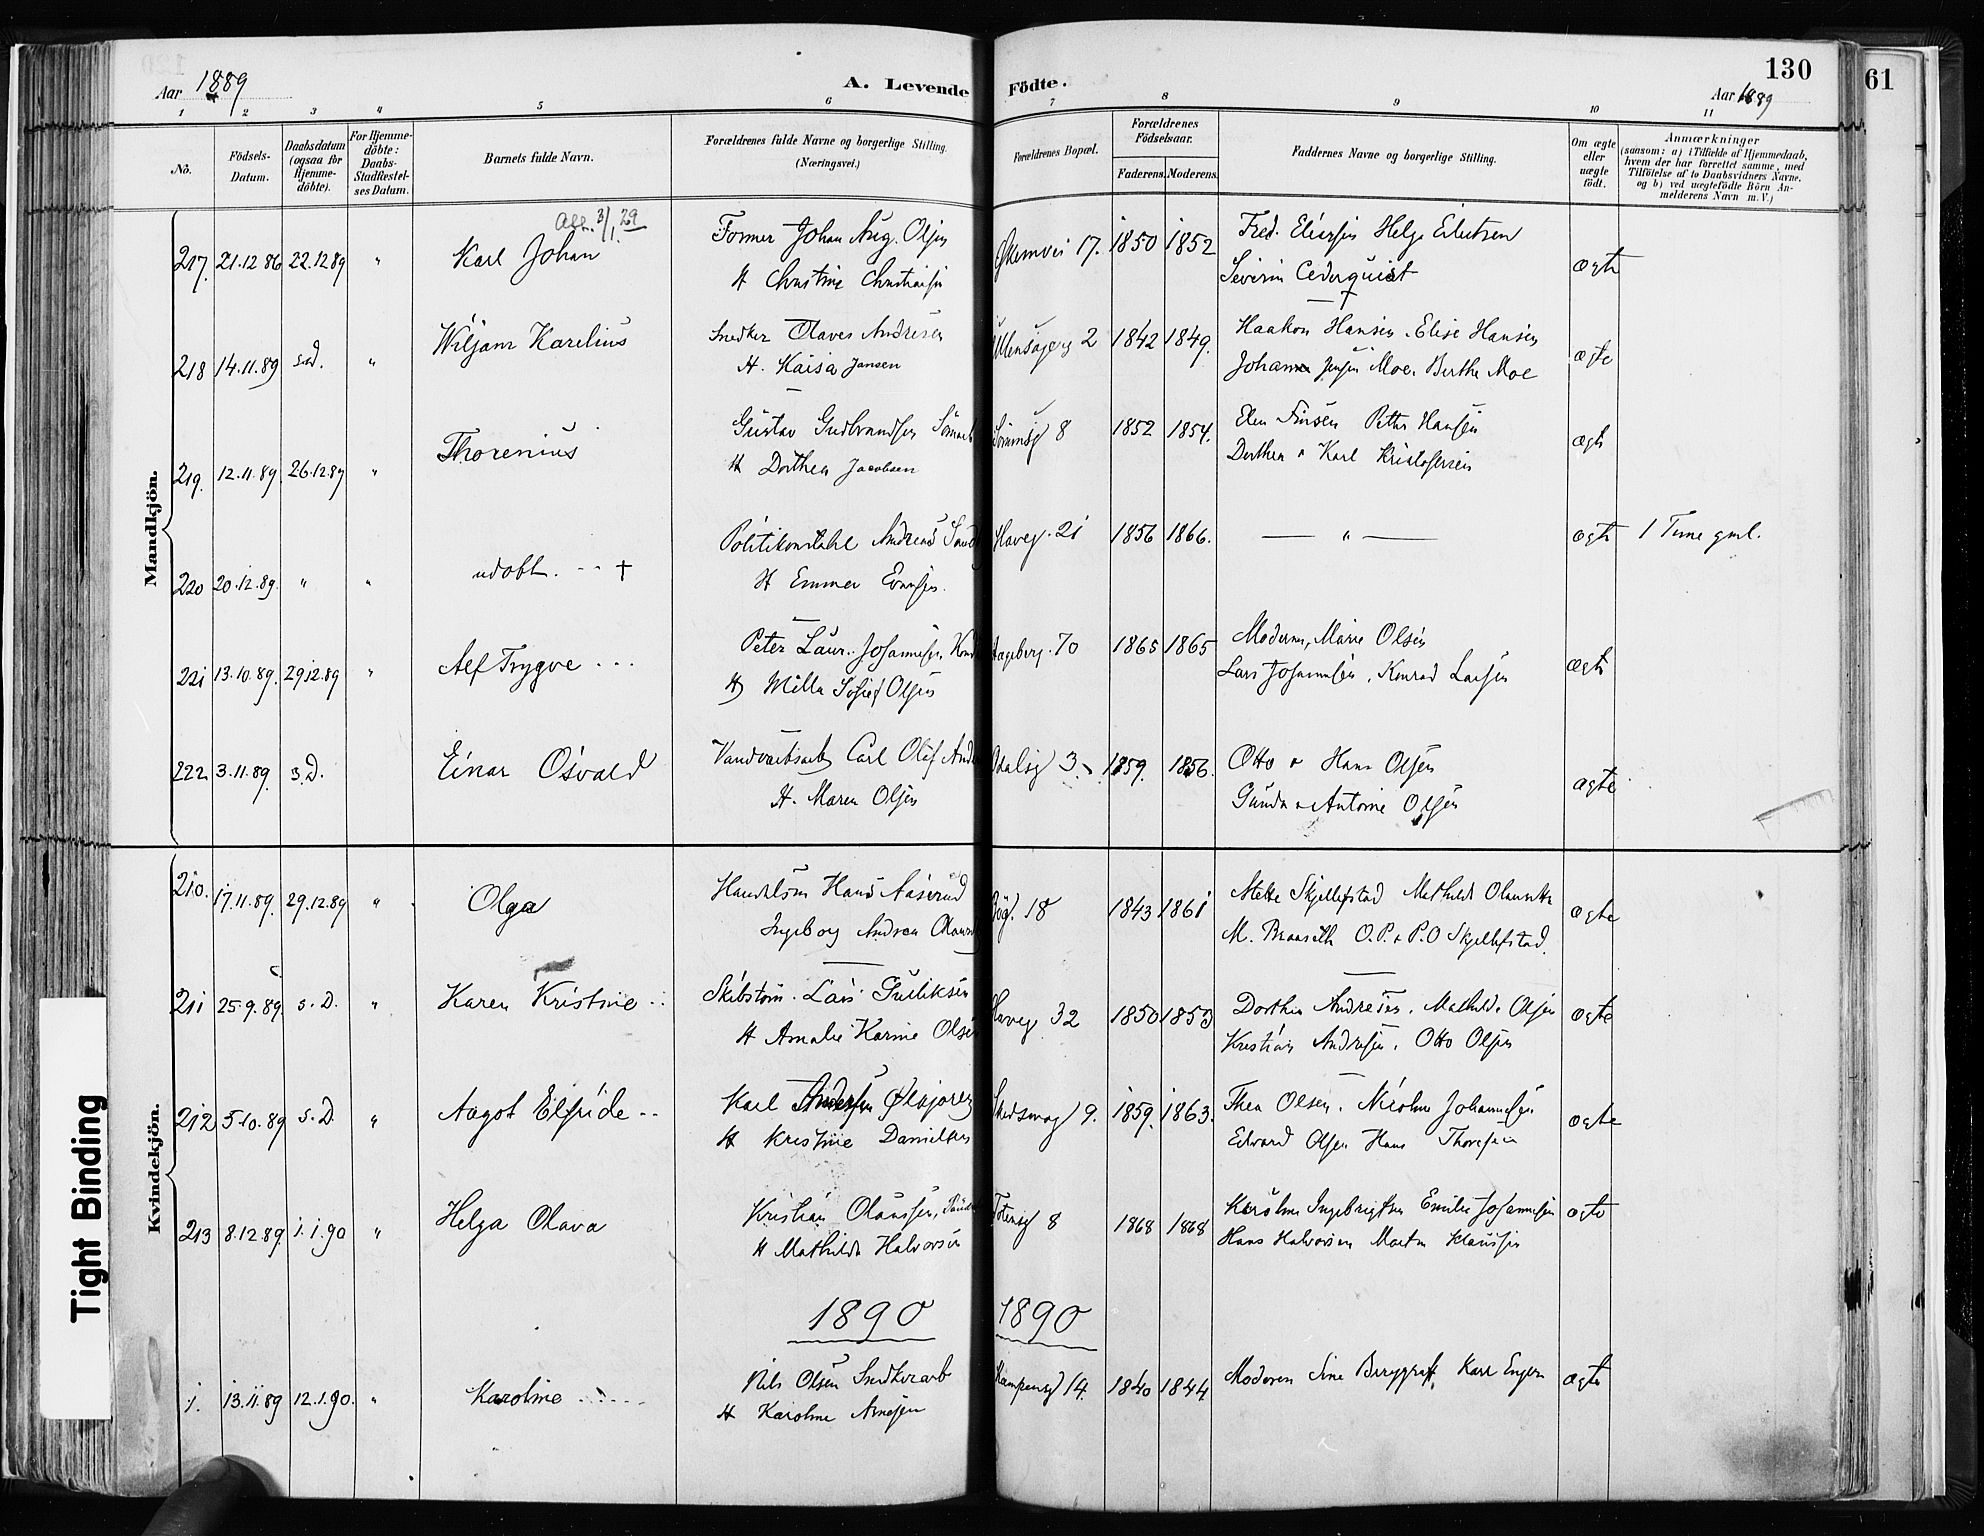 130
61
Aar 1889
A. Levende Födte.
Aar 1889
1 2 3 4 5 6 7 8 9 10 11
No.
Födsels-Datum.
Daabsdatum (ogsaa for Hjemme-döbte).
For Hjemme-döbte: Daabs-Stadfæstel-ses Datum.
Barnets fulde Navn.
Forældrenes fulde Navne og borgerlige Stilling. (Næringsvei.)
Forældrenes Bopæl.
Forældrenes Födselsaar.
Faderens. Moderens.
Faddernes Navne og borgerlige Stilling.
Om ægte eller uægte födt.
Anmærkninger
(saasom: a) i Tilfælde af Hjemmedaab,
hvem der har forrettet samme, med
Tilföielse af to Daabsvidners Navne,
og b) ved uægtefödte Börn An-
melderens Navn m. V.)
Mandkjön.
3/1 29
217. 21.12 86 22.12 89 " Karl Johan
Former Johan Aug. Olsen
H Christine Christiansen
17. 1850 1852
Fred. Eliassen Helge Eilertsen
Severin Cederquist
ægte
218 14.11.89 s.d. " Wiljam Karelius
Snedker Olaves Andresen
H. Kaisa Jansen
Ullensagerg 2 1842 1849.
Haakon Hansen. Elise Hansen
Johan Jensen Moe. Berthe Moe
ægte
219. 12.11.89 26.12 89 " Thorenius
Gustav Gudbrandsen
H Dorthea Jacobsen
8 1852 1854.
Elen Finsen Petter Hansen
Dorthea & Karl Kristofersen
ægte
220 20.12.89. " " udöbt. -- †
Politikonstabel Andreas
H Emmer Evensen.
Haveg. 21 1856 1866.
— " —
ægte 1 Time gml.
221 13.10.89. 29.12.89 " Alf Trygve ...
Peter Laur. Johannesen
H Milla Sofie Olsen
Hageberg. 70 1865 1865
Moderen, Marie Olsen
Lars Johannesen, Konrad Larsen
ægte
222 3.11.89. s.D. Einar Osvald
Vandværksarb Carl Olaf
H. Maren Olsen
3. 1859. 1856.
Otto & Hans Olsen
Gunda & Antonie Olsen
ægte
Kvindekjön.
210. 17.11.89. 29.12.89 " Olga
Handelsm Hans Aaserud
Ingeborg Andrea
18 1843 1861
Mette Skjellefstad Mathilde
M. O.P. & P.O Skjellefstad.
ægte
211 25.9.89. s.D. " Karen Kristine
Skibstöm. Lars Gulliksen
H Amalie Karine Olsen
Haveg 32 1850 1853
Dorthea Andresen. Mathilde Olsen
Kristian Andresen. Otto Olsen
ægte
212 5.10.89 s.D. " Aagot Elfride --
Karl Andersen
H Kristine Danielsen
9. 1859. 1863.
Thea Olsen. Nicoline Johannesen
Edvard Olsen Hans Thoresen
ægte
213 8.12.89. 1.1.90 " Helga Olava
Kristian Olaussen,
H Mathilde Halvorsen
Totensg 8 1868 1868
Karoline Ingebrigtsen Emilie Johannesen
Hans Halvorsen Martin Klausen
ægte
1890 1890
1. 13.11.89 12.1.90. " Karoline ......
Nils Olsen Snedkerarb
H Karoline Arnesen
Kampensg 14. 1840 1844
Moderen Sine Karl Engen
ægte
Tight Binding